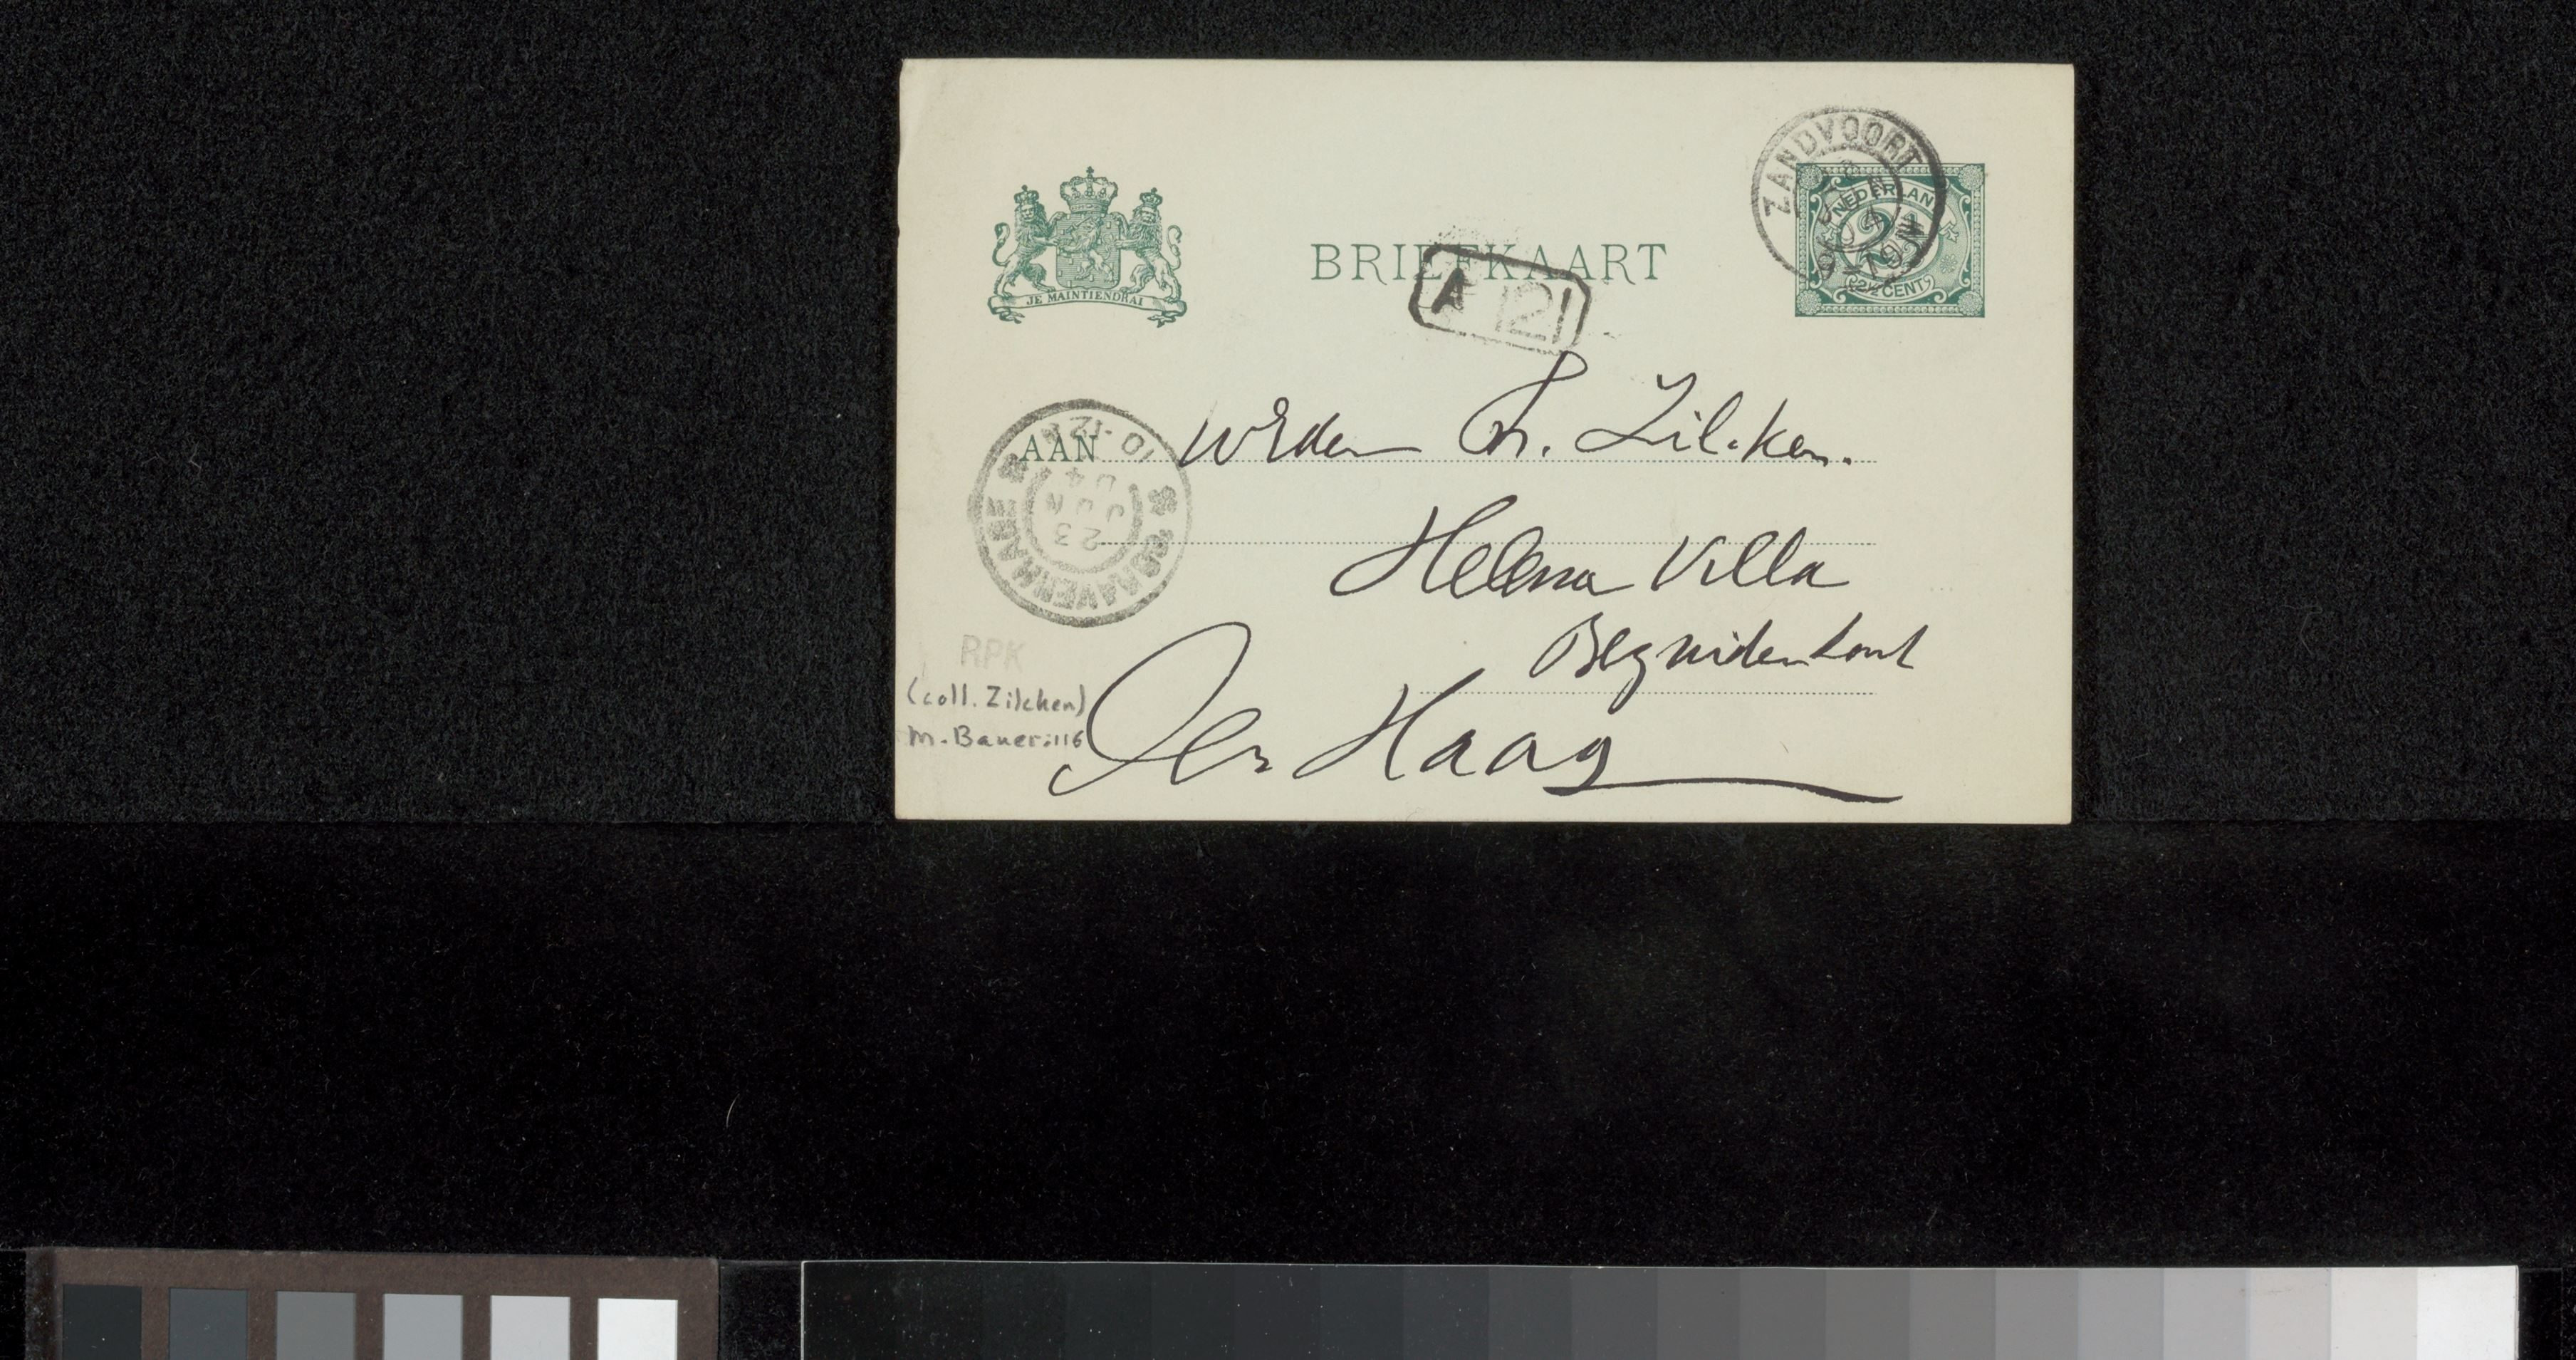 ZANDVOORT
NEDERLAND
2½ CENT
JE MAINTIENDRAI
BRIEFKAART
A 121
AAN WEdn Ph. Zilcken.
'S-GRAVENHAGE
23 JUN 04
10-12
Helena Villa
Bezuidenhout
Den Haag
RPK
(coll. Zilcken)
M. Bauer: 116